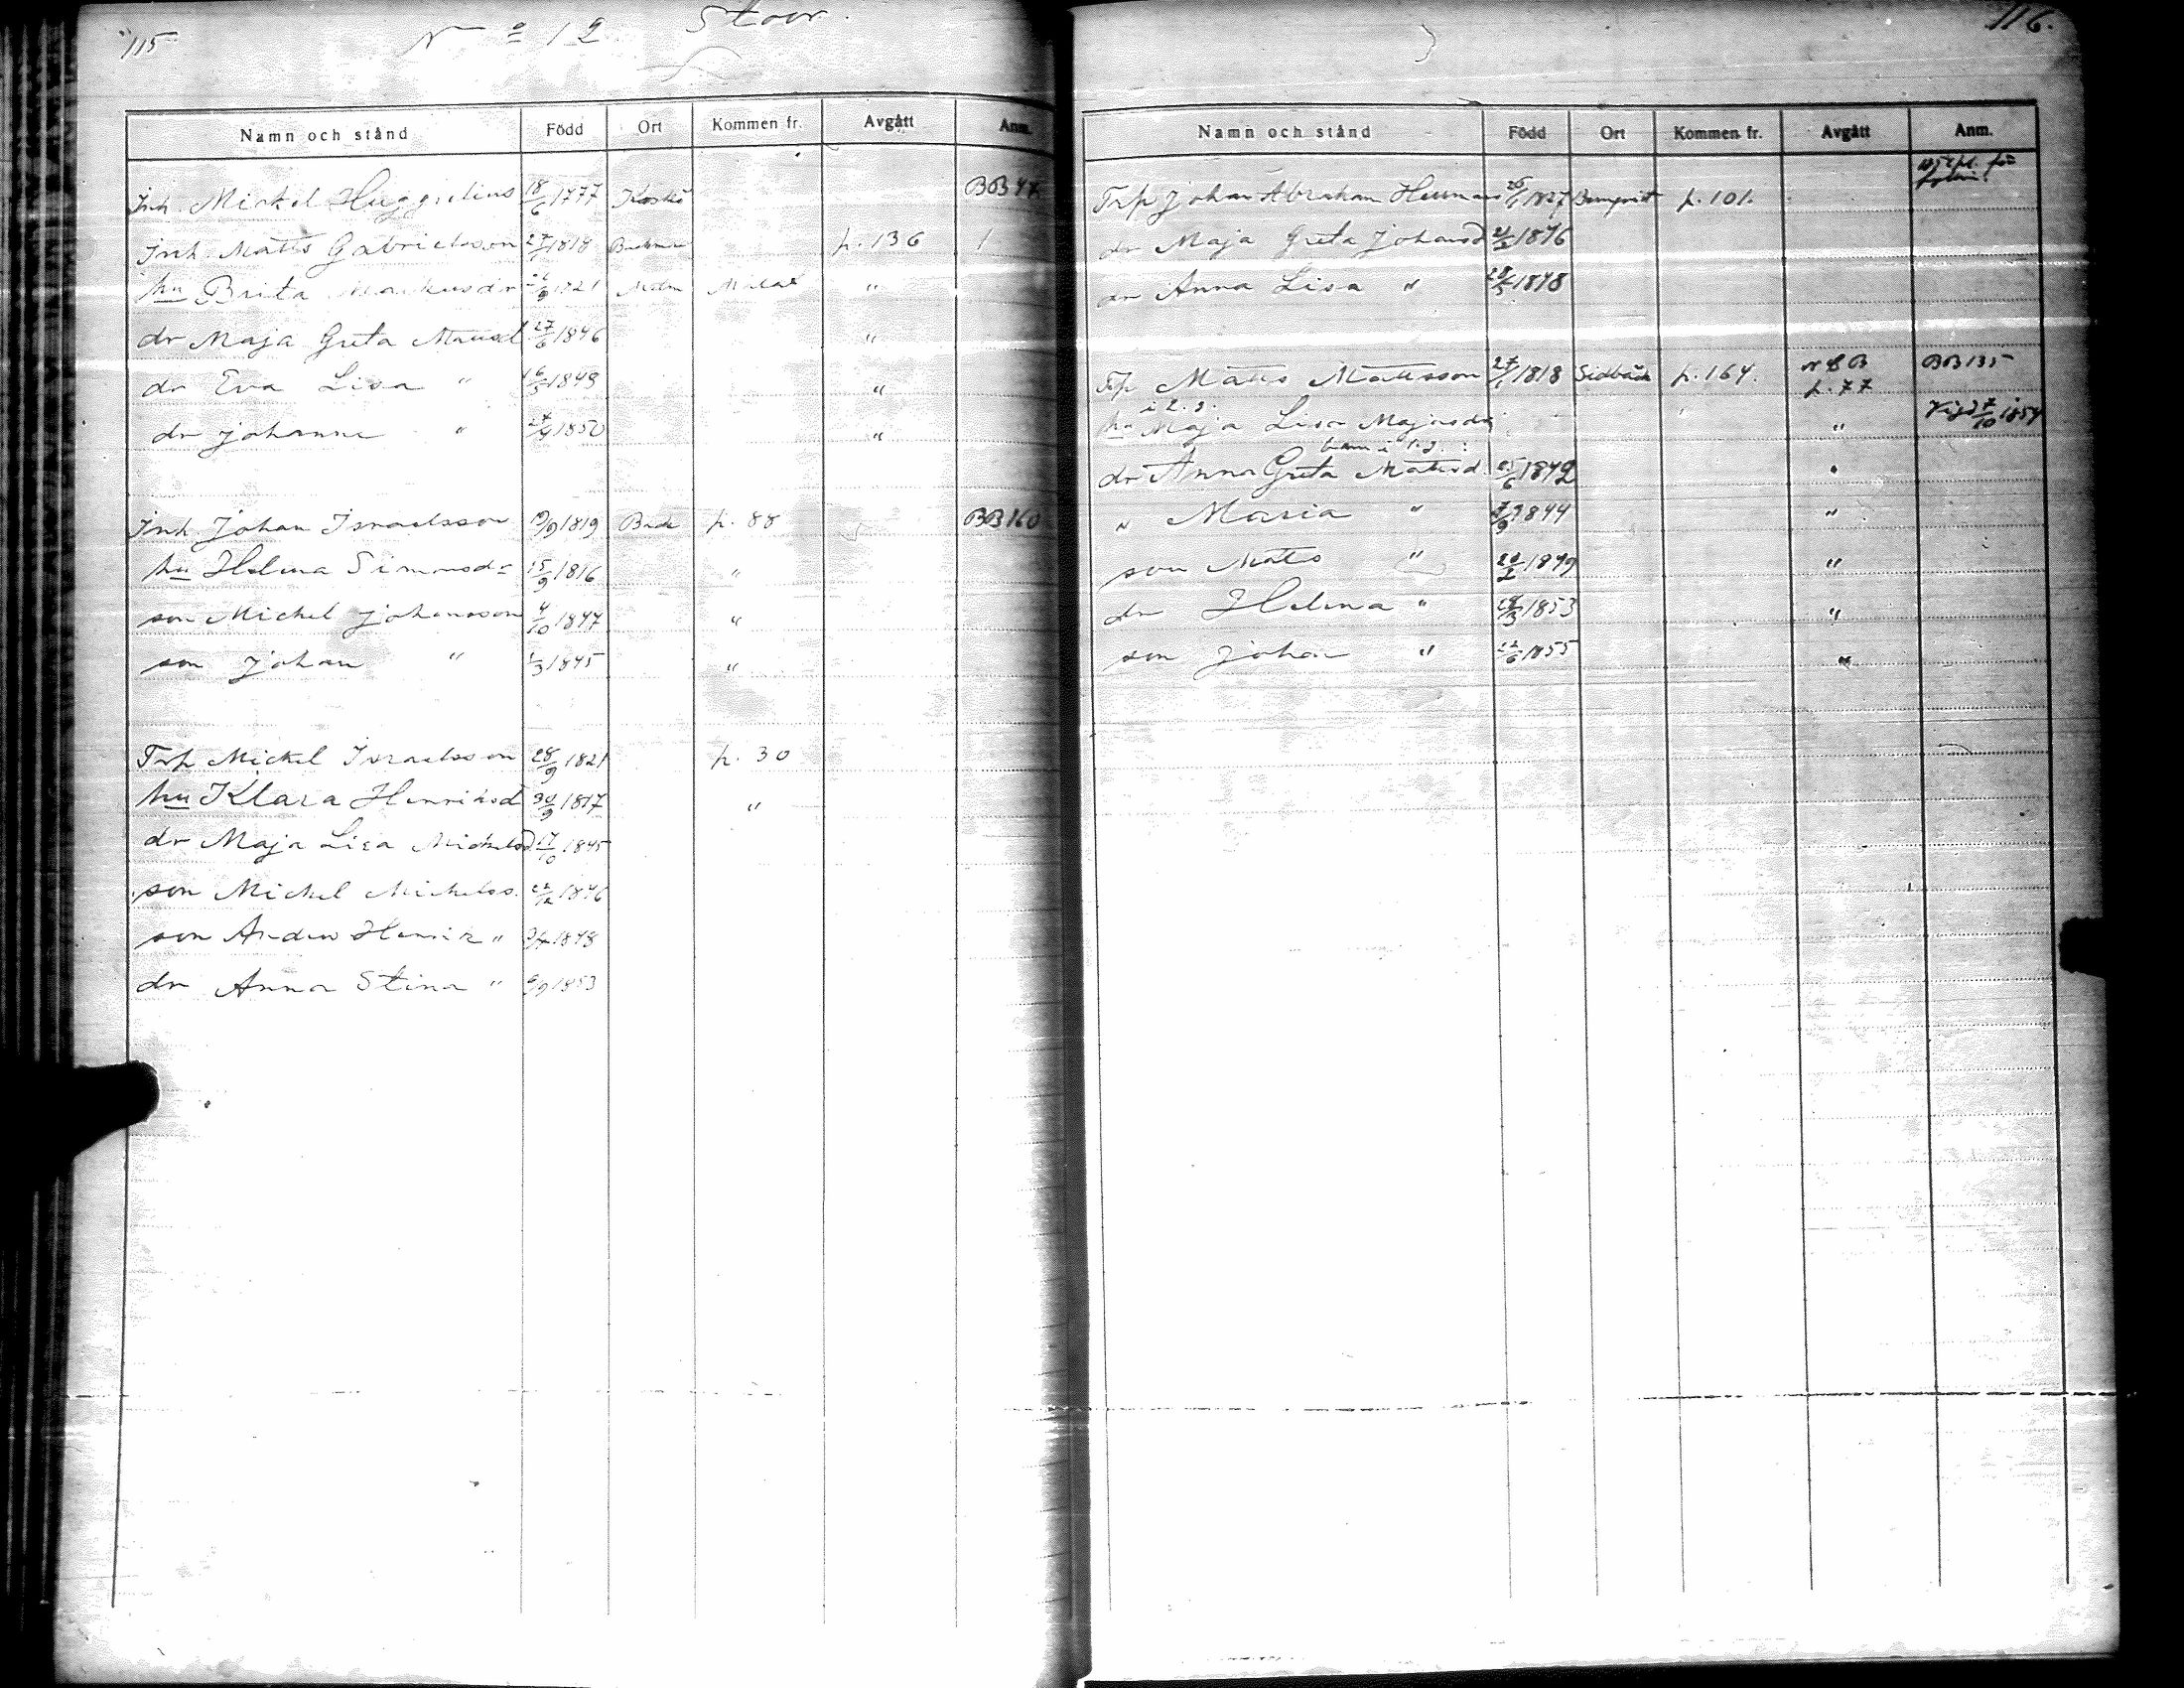 115
No 12 Stoor.
Namn och stånd Född Ort Kommen fr. Avgått Anm.
Inh. Mickel Huggdelius 18/6 1777 Koskö BB 47
Inh. Matts Gabrielsson 27/1 1818 p. 136
hu Brita Markusdr 1821 "
dr Maja Greta Mattsd 27/6 1846 "
dr Eva Lisa " 1849 "
dr Johanna " 1850 "
Inh Johan Israelsson 19/9 1819 p. 88 BB 160
hu Helena Simonsdr 15/9 1816 "
son Mickel Johansson 4/10 1847 "
son Johan " 1/3 1845 "
Trp Mickel Israelsson 28/9 1821 p. 30
hu Klara Henriksd 30/9 1817 "
dr Maja Lisa Mickelsd 17/10 1845
son Mickel Mickelss. 1846
son Anders Henrik " 1848
dr Anna Stina " 6/9 1853
116.
Namn och stånd Född Ort Kommen fr. Avgått Anm.
Trp Johan Abraham Herman 1827 p. 101.
dr Maja Greta Johansd 1846
dr Anna Lisa " 1848
Trp Matts Mattsson 27/1 1818 Sidbäck p. 164. N L B BB 135
p. 77
i 2. g.
hu Maja Lisa Majasdr " Vigd 7/10 1854
barn i 1. g. :
dr Anna Greta Mattsd 25/6 1842 "
" Maria " 1844 "
son Matts " 20/2 1849 "
dr Helena " 28/3 1853 "
son Johan " 1855 "